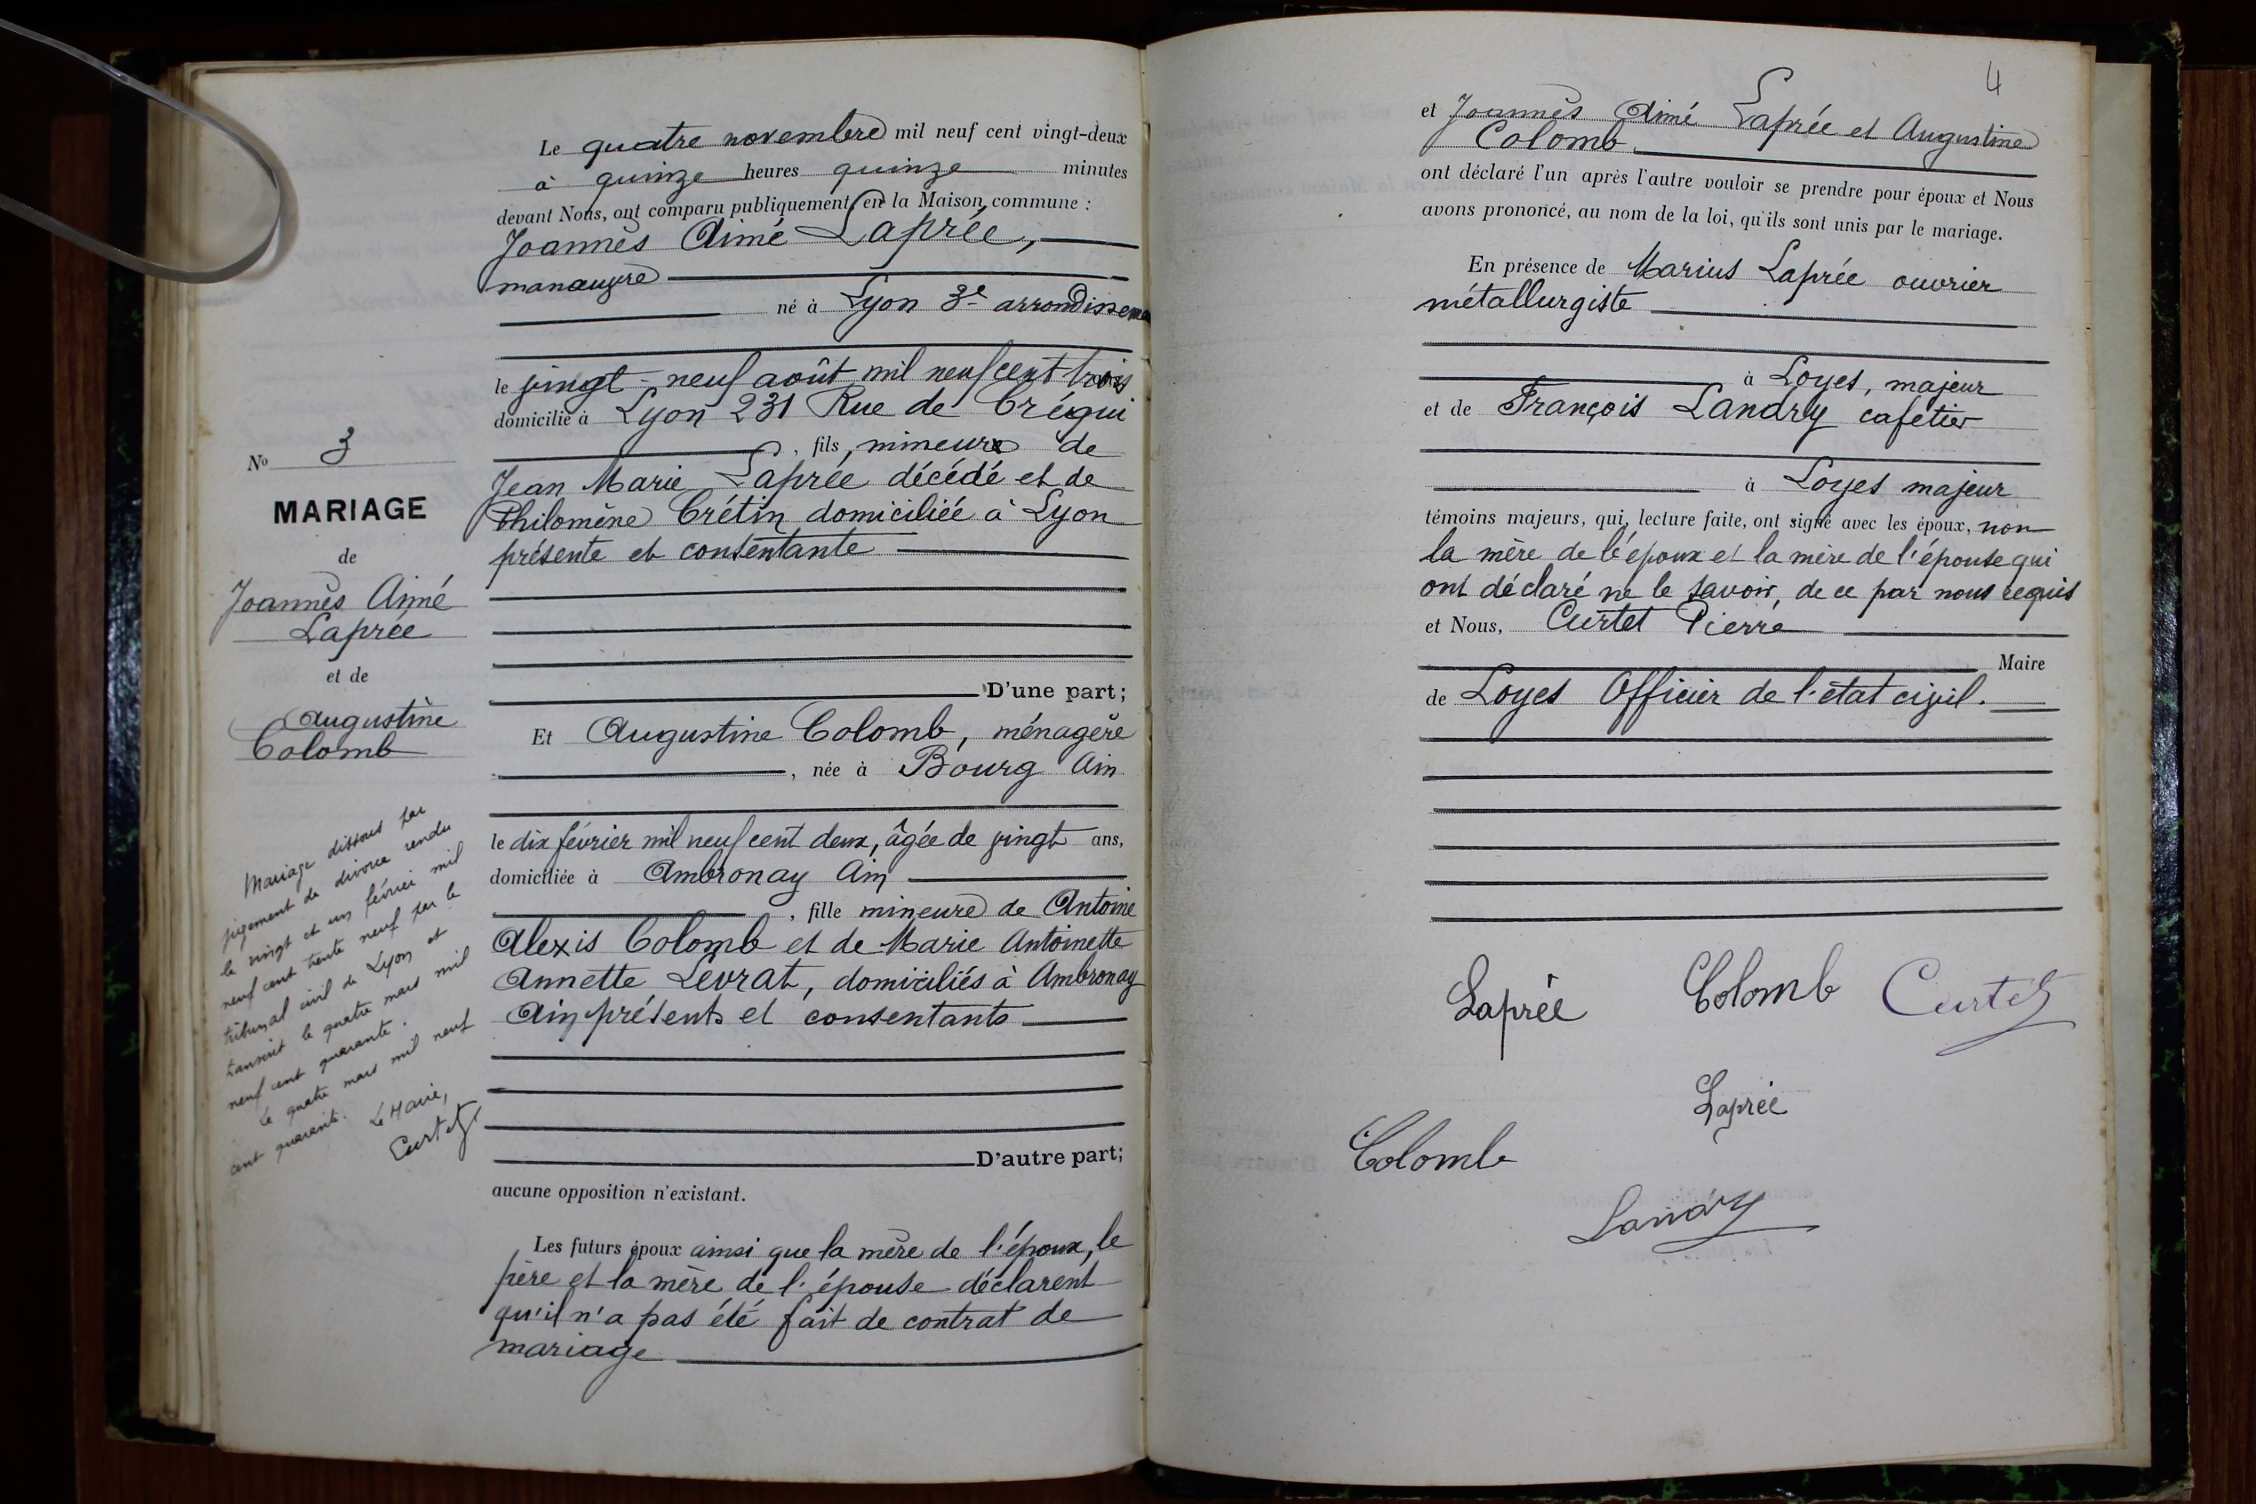 Le quatre novembre mil neuf cent vingt-deux
à quinze heures quinze minutes
devant Nous, ont comparu publiquement en la Maison commune :
Joannès Aimé Laprée,
manœuvre
né à Lyon 3e arrondissement
le vingt-neuf août mil neuf cent trois
domicilié à Lyon 231 Rue de Créqui
, fils mineur de
Jean Marie Laprée décédé et de
Philomène Crétin domiciliée à Lyon
présente et consentante
D'une part;
Et Augustine Colomb, ménagère
, née à Bourg Ain
le dix février mil neuf cent deux, âgée de vingt ans,
domiciliée à Ambronay Ain
, fille mineure de Antoine
Alexis Colomb et de Marie Antoinette
Annette Levrat, domiciliés à Ambronay
Ain présents et consentants
D'autre part;
aucune opposition n'existant.
Les futurs époux ainsi que la mère de l'époux, le
père et la mère de l'épouse déclarent
qu'il n'a pas été fait de contrat de
mariage
No 3
MARIAGE
de
Joannès Aimé
Laprée
et de
Augustine
Colomb
Mariage dissous par
jugement de divorce rendu
le vingt et un février mil
neuf cent trente neuf par le
tribunal civil de Lyon et
transcrit le quatre mars mil
neuf cent quarante.
Le quatre mars mil neuf
cent quarante. Le Maire,
Curtet
4
et Joannès Aimé Laprée et Augustine
Colomb
ont déclaré l'un après l'autre vouloir se prendre pour époux et Nous
avons prononcé, au nom de la loi, qu'ils sont unis par le mariage.
En présence de Marius Laprée ouvrier
métallurgiste
à Loyes, majeur
et de François Landry cafetier
à Loyes majeur
témoins majeurs, qui, lecture faite, ont signé avec les époux, non
la mère de l'époux et la mère de l'épouse qui
ont déclaré ne le savoir, de ce par nous requis
et Nous, Curtet Pierre
Maire
de Loyes Officier de l'état civil.
Laprée Colomb Curtet
Laprée
Colomb
Landry